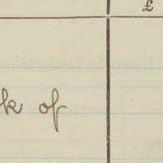 £
k of